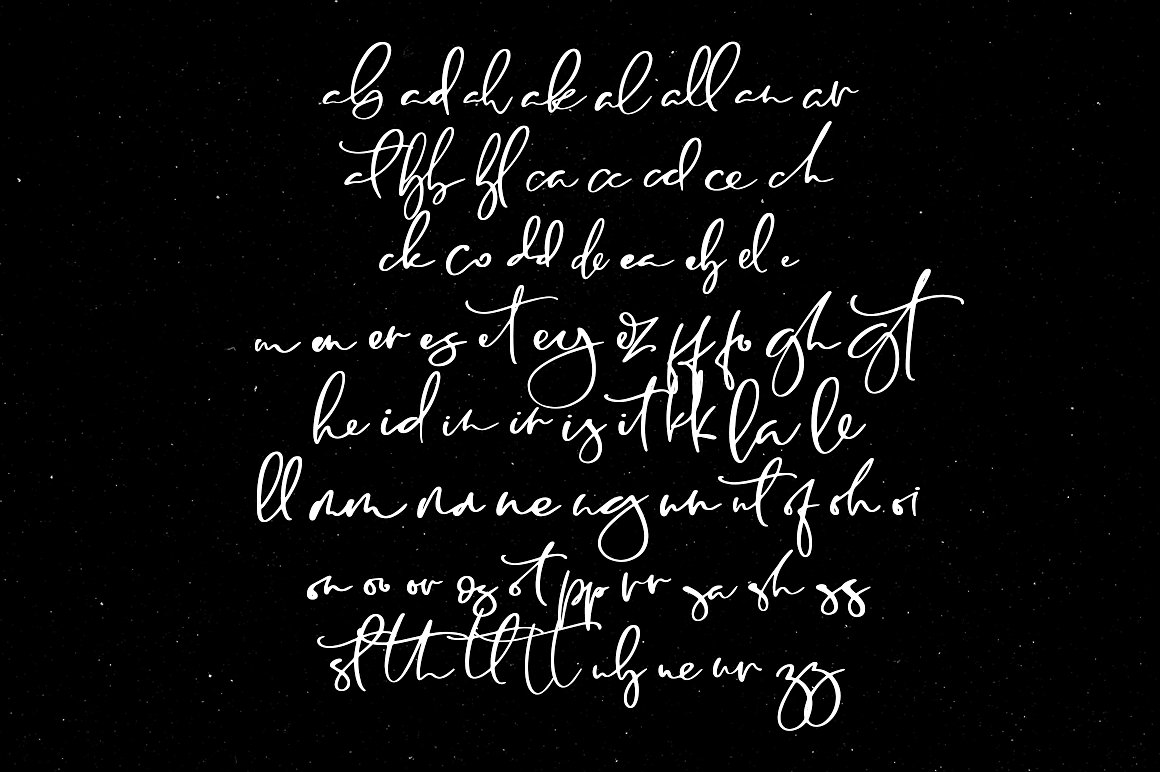 ab ad ah ak al all an ar
at bb bl ca cc cd ce ch
ck co dd de ea eb el e
m en er es et ey oz ff fo gh gt
he id in ir is it kk la le
ll mm na ne ng nn nt of oh oi
on oo or os ot pp rr sa sh ss
st th tt ub ue ur zz